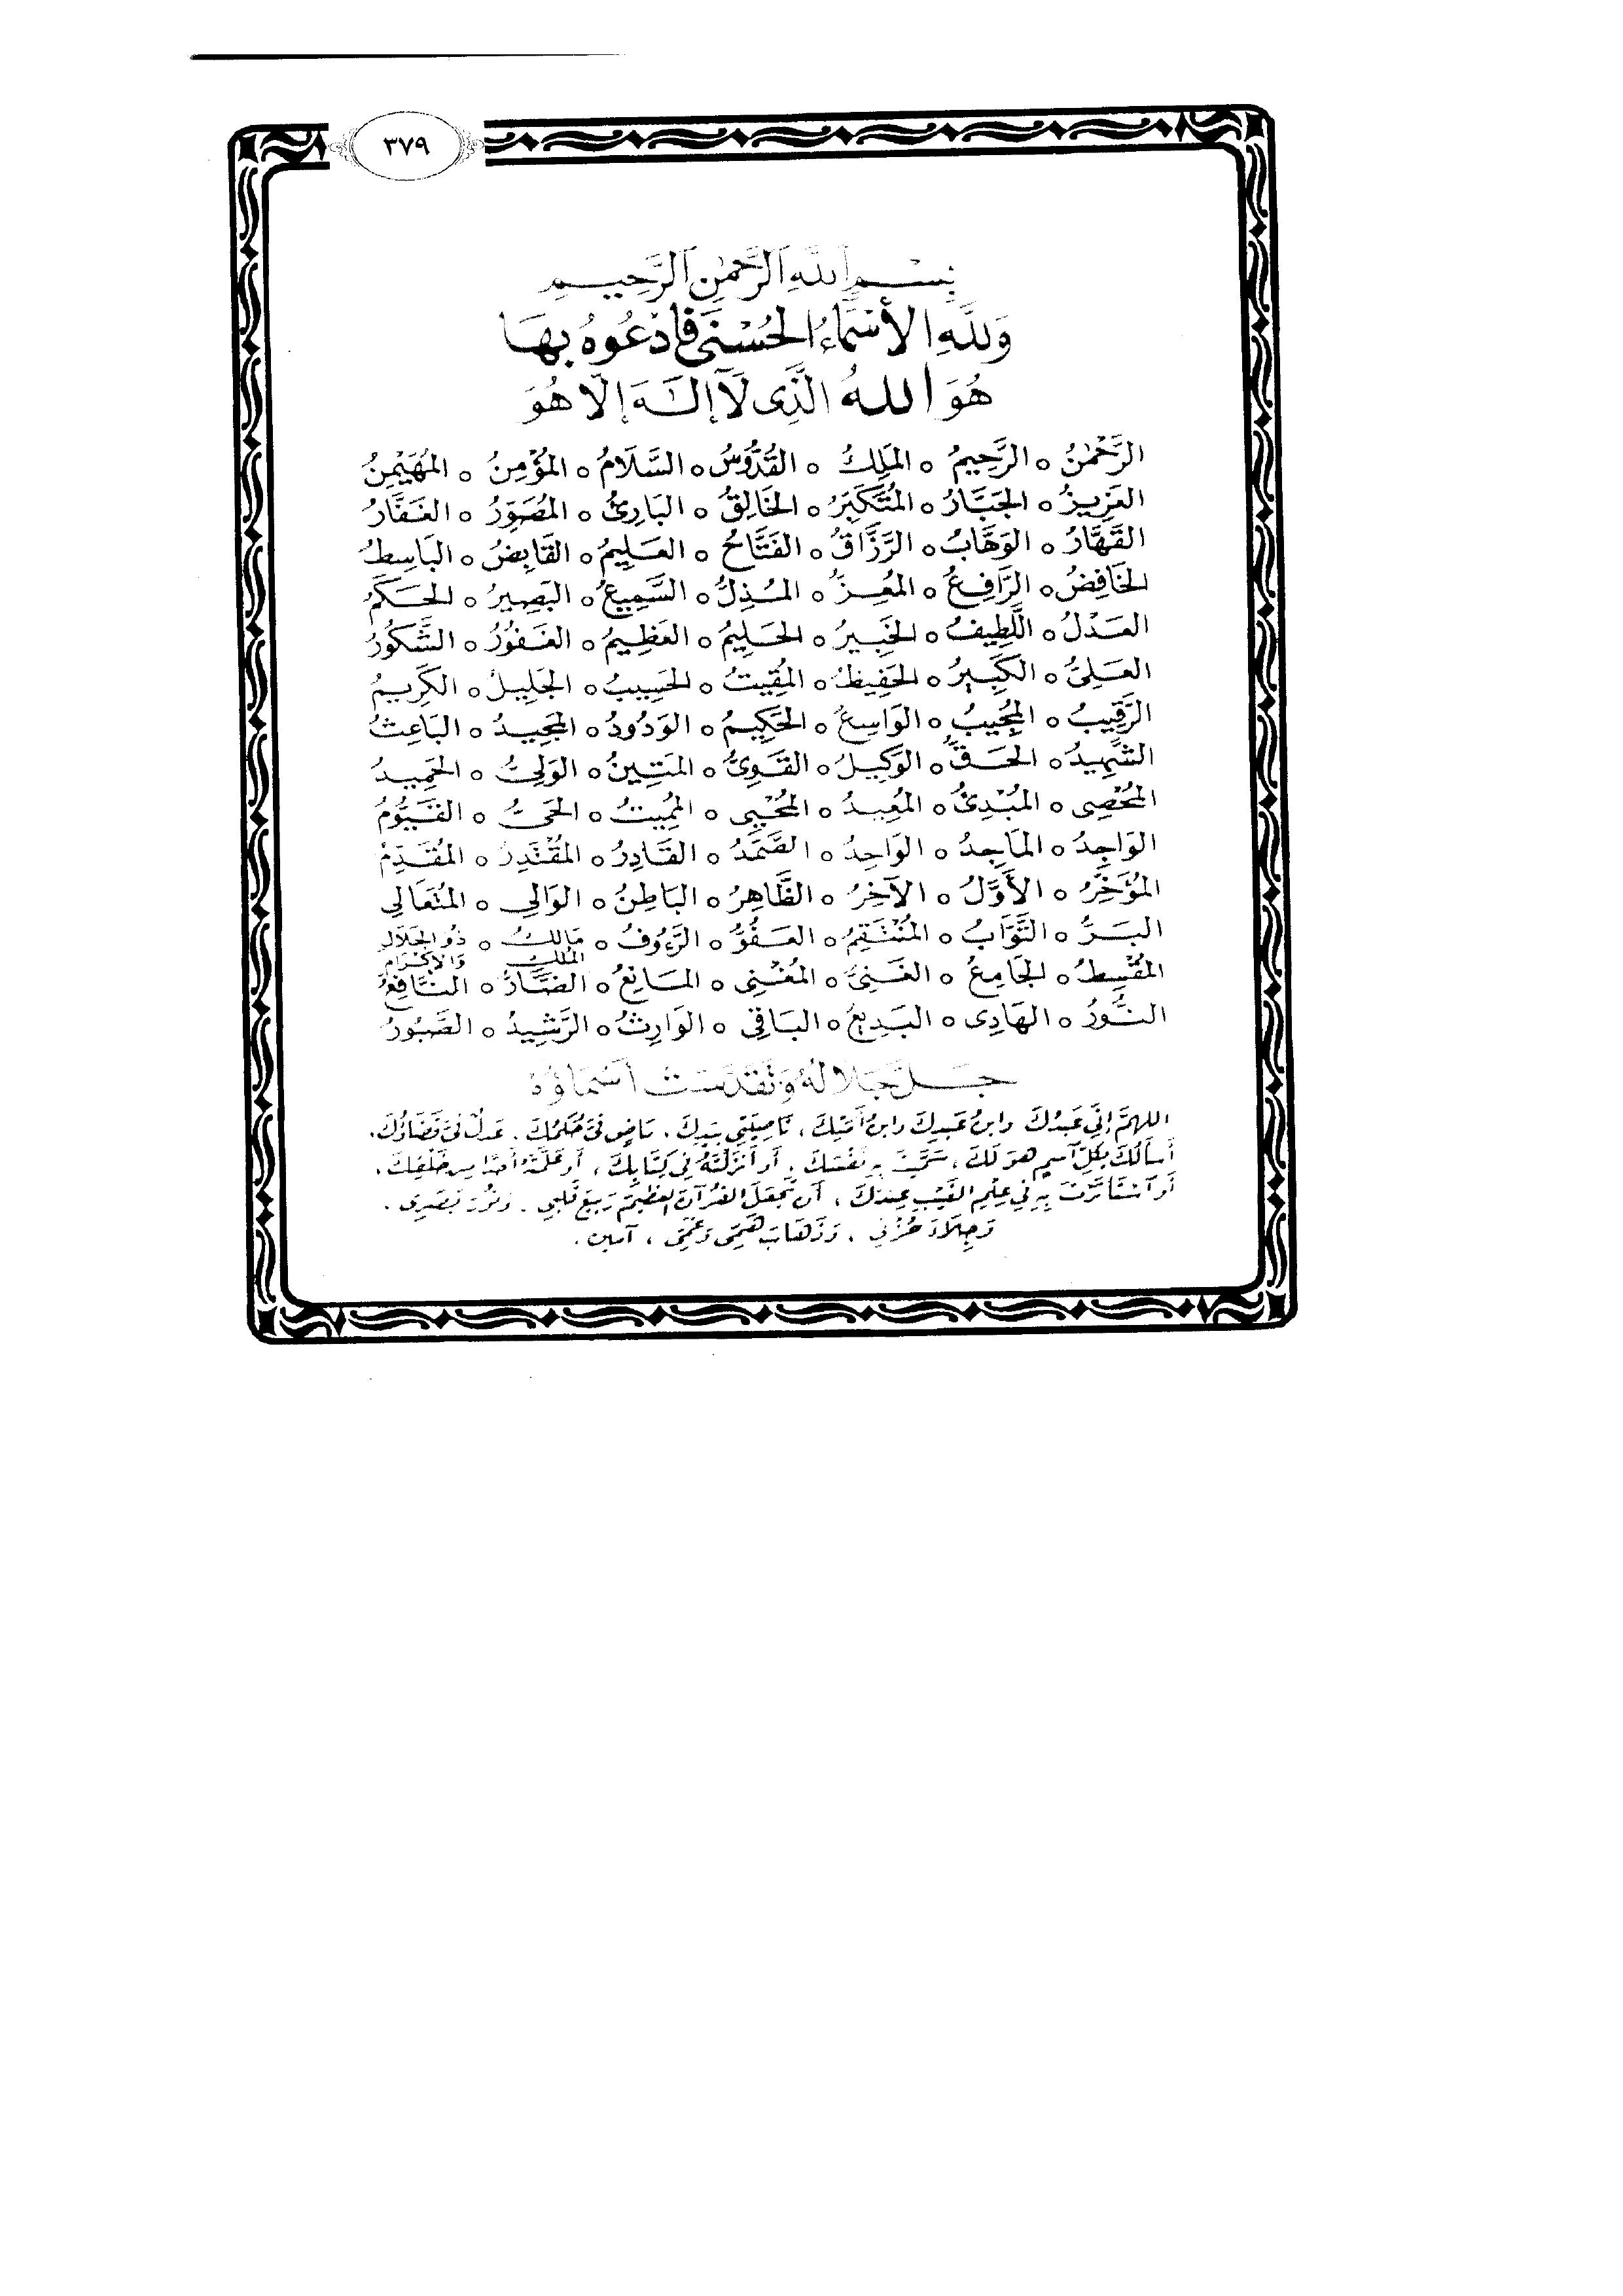 ٣٧٩
بِسْمِ اللهِ الرَّحْمٰنِ الرَّحِيمِ
وَلِلَّهِ الأَسْمَاءُ الحُسْنَى فَادْعُوهُ بِهَا
هُوَ اللهُ الَّذِى لَآ إِلَهَ إِلَّا هُوَ
الرَّحْمٰنُ ٥ الرَّحِيمُ ٥ المَلِكُ ٥ القُدُّوسُ ٥ السَّلَامُ ٥ المُؤْمِنُ ٥ المُهَيْمِنُ
العَزِيزُ ٥ الجَبَّارُ ٥ المُتَكَبِّرُ ٥ الخَالِقُ ٥ البَارِئُ ٥ المُصَوِّرُ ٥ الغَفَّارُ
القَهَّارُ ٥ الوَهَّابُ ٥ الرَّزَّاقُ ٥ الفَتَّاحُ ٥ العَلِيمُ ٥ القَابِضُ ٥ البَاسِطُ
الخَافِضُ ٥ الرَّافِعُ ٥ المُعِزُّ ٥ المُذِلُّ ٥ السَّمِيعُ ٥ البَصِيرُ ٥ الحَكَمُ
العَدْلُ ٥ اللَّطِيفُ ٥ الخَبِيرُ ٥ الحَلِيمُ ٥ العَظِيمُ ٥ الغَفُورُ ٥ الشَّكُورُ
العَلِىُّ ٥ الكَبِيرُ ٥ الحَفِيظُ ٥ المُقِيتُ ٥ الحَسِيبُ ٥ الجَلِيلُ ٥ الكَرِيمُ
الرَّقِيبُ ٥ المُجِيبُ ٥ الوَاسِعُ ٥ الحَكِيمُ ٥ الوَدُودُ ٥ المَجِيدُ ٥ البَاعِثُ
الشَّهِيدُ ٥ الحَقُّ ٥ الوَكِيلُ ٥ القَوِىُّ ٥ المَتِينُ ٥ الوَلِىُّ ٥ الحَمِيدُ
المُحْصِى ٥ المُبْدِئُ ٥ المُعِيدُ ٥ المُحْيِى ٥ المُمِيتُ ٥ الحَىُّ ٥ القَيُّومُ
الوَاجِدُ ٥ المَاجِدُ ٥ الوَاحِدُ ٥ الصَّمَدُ ٥ القَادِرُ ٥ المُقْتَدِرُ ٥ المُقَدِّمُ
المُؤَخِّرُ ٥ الأَوَّلُ ٥ الآخِرُ ٥ الظَّاهِرُ ٥ البَاطِنُ ٥ الوَالِى ٥ المُتَعَالِى
البَرُّ ٥ التَّوَّابُ ٥ المُنْتَقِمُ ٥ العَفُوُّ ٥ الرَّءُوفُ ٥ مَالِكُ المُلْكِ ٥ ذُو الجَلَالِ وَالإِكْرَامِ
المُقْسِطُ ٥ الجَامِعُ ٥ الغَنِىُّ ٥ المُغْنِى ٥ المَانِعُ ٥ الضَّارُّ ٥ النَّافِعُ
النُّورُ ٥ الهَادِى ٥ البَدِيعُ ٥ البَاقِى ٥ الوَارِثُ ٥ الرَّشِيدُ ٥ الصَّبُورُ
جَلَّ جَلَالُهُ وَتَقَدَّسَتْ أَسْمَاؤُهُ
اللهمَّ إنِّي عَبْدُكَ وابنُ عَبدِكَ وابنُ أَمَتِكَ ، نَاصِيَتِي بِيَدِكَ . مَاضٍ فيَّ حُكمُكَ . عَدلٌ فيَّ قَضَاؤُكَ .
أَسأَلُكَ بِكلِّ آسمٍ هوَ لَكَ ، سَمَّيْتَ بِهِ نَفْسَكَ . أَو أَنزَلْتَهُ فِي كِتَابِكَ ، أَو عَلَّمْتَهُ أَحَدًا مِن خَلْقِكَ ،
أَو آستَأثَرْتَ بِهِ فِي عِلْمِ الغَيْبِ عِندَكَ ، أَن تَجْعَلَ القُرآنَ العَظِيمَ رَبِيعَ قَلبِي . وَنُورَ بَصَرِى .
وَجِلَاءَ حُزْنِي . وَذَهَابَ هَمِّى وَغَمِّى ، آمين .